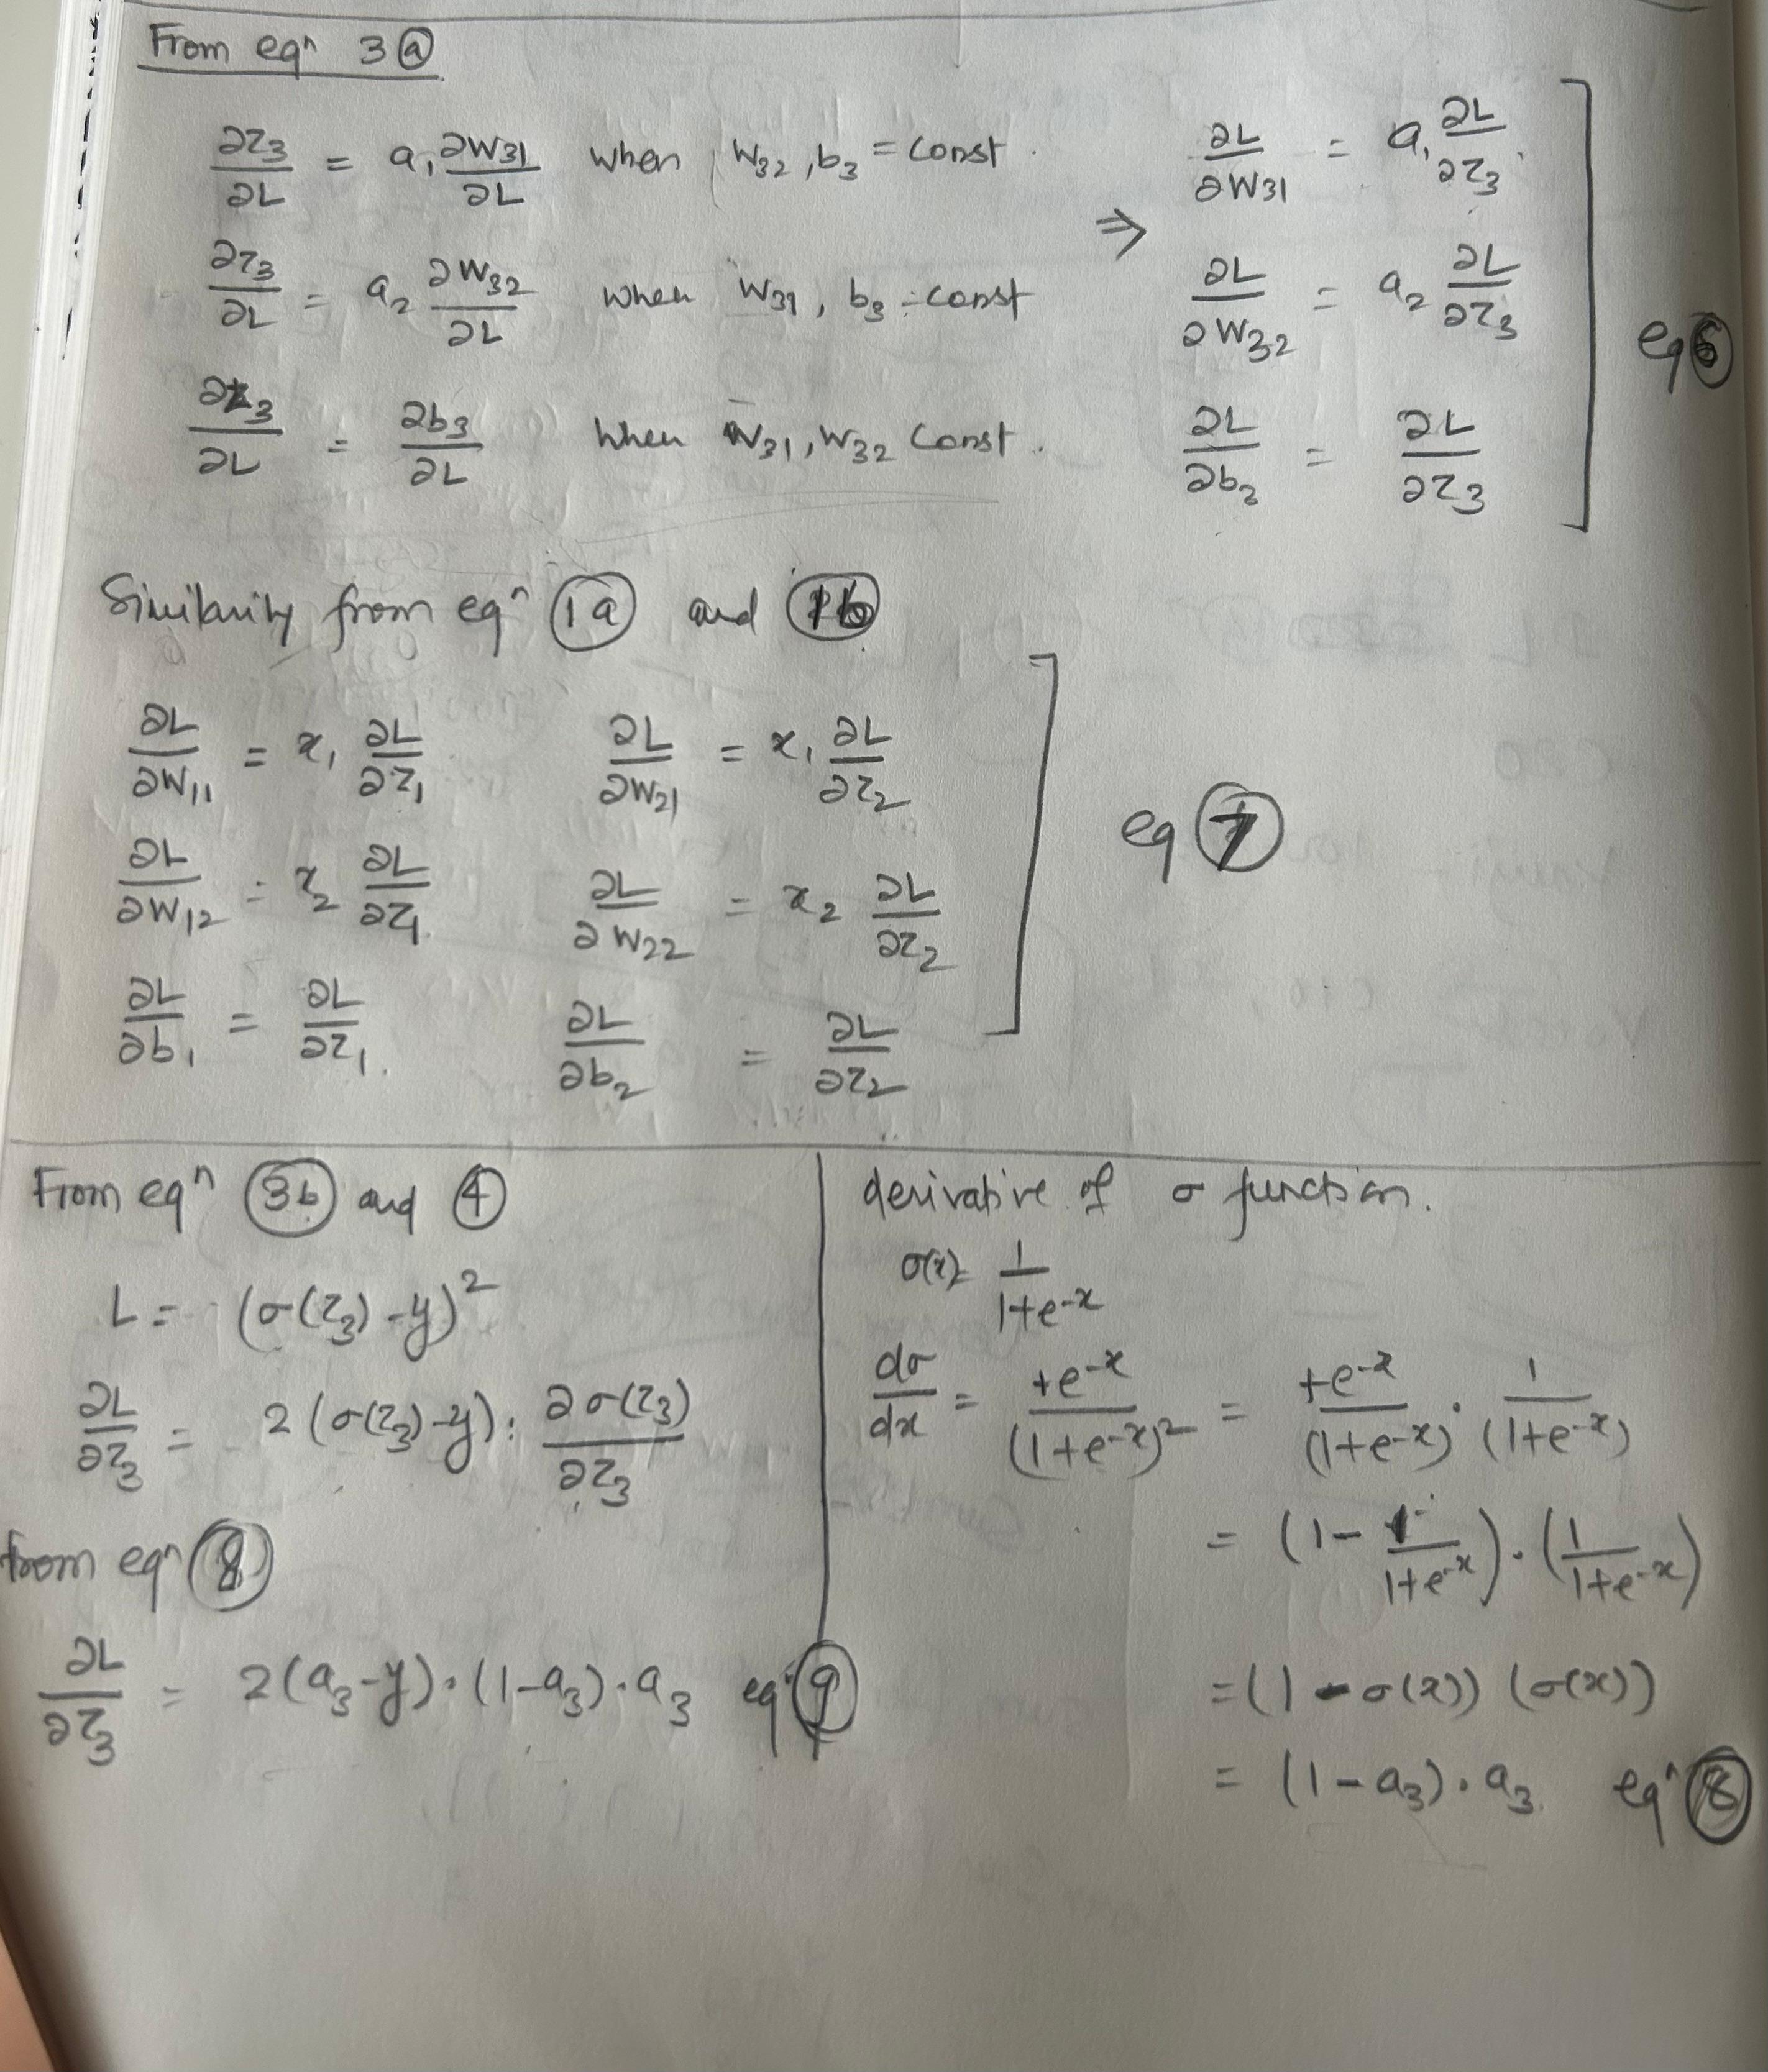 From eqⁿ 3ⓐ
∂z₃/∂L = a₁ ∂W₃₁/∂L when W₃₂, b₃ = const.
∂z₃/∂L = a₂ ∂W₃₂/∂L when W₃₁, b₃ = const
∂z₃/∂L = ∂b₃/∂L when W₃₁, W₃₂ Const.
⇒ ∂L/∂W₃₁ = a₁ ∂L/∂z₃
∂L/∂W₃₂ = a₂ ∂L/∂z₃
∂L/∂b₃ = ∂L/∂z₃
eq
Similarity from eqⁿ (1a) and (1b)
∂L/∂W₁₁ = x₁ ∂L/∂z₁ ∂L/∂W₂₁ = x₁ ∂L/∂z₂
∂L/∂W₁₂ = x₂ ∂L/∂z₁ ∂L/∂W₂₂ = x₂ ∂L/∂z₂
∂L/∂b₁ = ∂L/∂z₁. ∂L/∂b₂ = ∂L/∂z₂
eq (7)
From eqⁿ (3b) and (4)
L = (σ(z₃) - y)²
∂L/∂z₃ = 2(σ(z₃) - y) · ∂σ(z₃)/∂z₃
from eqⁿ (8)
∂L/∂z₃ = 2(a₃ - y)·(1 - a₃)·a₃ eqⁿ (9)
derivative of σ function.
σ(x) = 1/(1+e^-x)
dσ/dx = +e^-x/(1+e^-x)² = +e^-x/(1+e^-x) · 1/(1+e^-x)
= (1 - 1/(1+e^-x)) · (1/(1+e^-x))
= (1 - σ(x)) (σ(x))
= (1 - a₃) · a₃ eqⁿ (8)